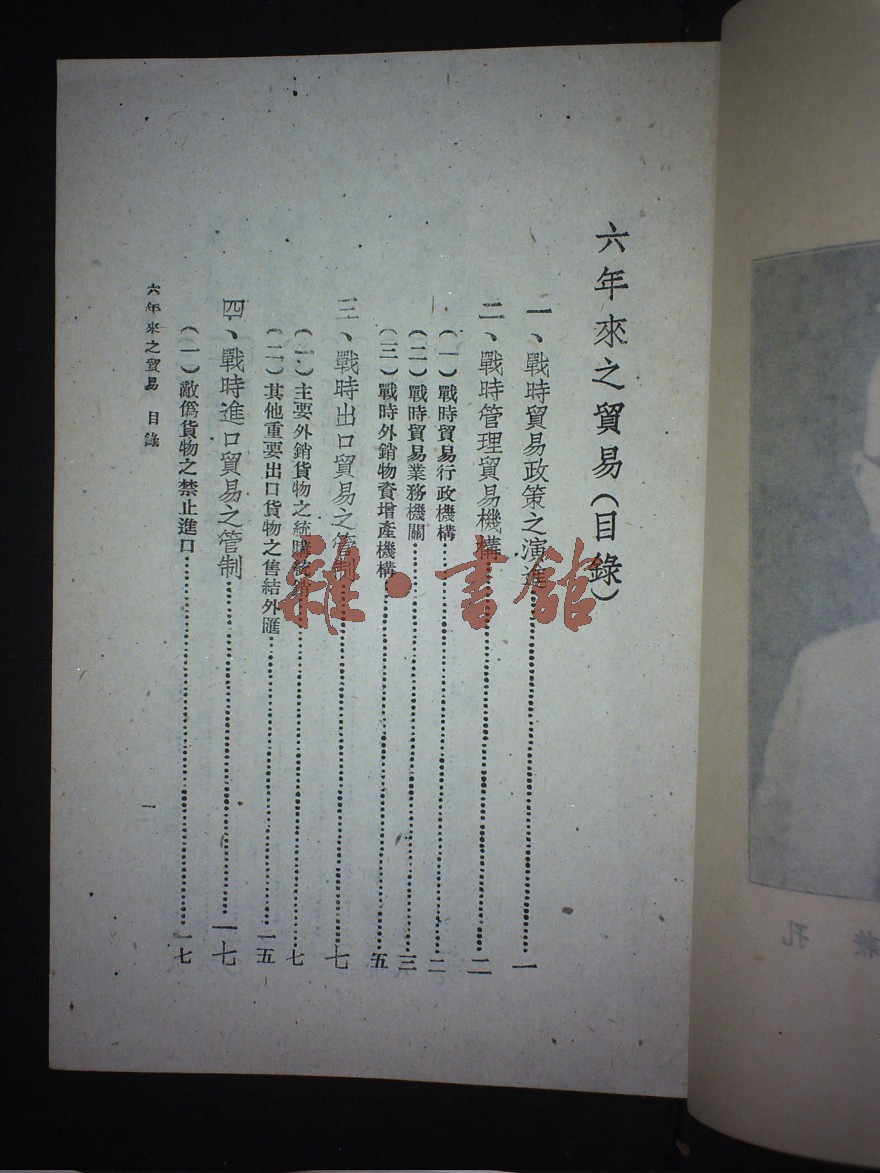 六年來之貿易(目錄)
一、戰時貿易政策之演進……一
二、戰時管理貿易機構……二
(一)戰時貿易行政機構……二
(二)戰時貿易業務機關……三
(三)戰時外銷物資增產機構……五
三、戰時出口貿易之管制……七
(一)主要外銷貨物之統購統銷……七
(二)其他重要出口貨物之售結外匯……一五
四、戰時進口貿易之管制……一七
(一)敵僞貨物之禁止進口……一七
六年來之貿易 目錄
一
雜·書館
孔